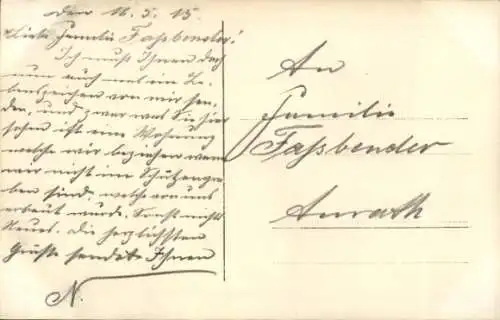 den 16.5.15.
Liebe Familie Fassbender!
Ich muß Ihnen doch
nun auch mal ein Le-
benszeichen von mir sen-
den, und zwar was Sie hier
sehen ist eine Wohnung
welche wir beziehen wenn
wir nicht im Schützengra-
ben sind, welche von uns
erbaut wurde. Sonst nichts
Neues. Die herzlichsten
Grüße sendet Ihnen
N.
An
Familie
Fassbender
Anrath